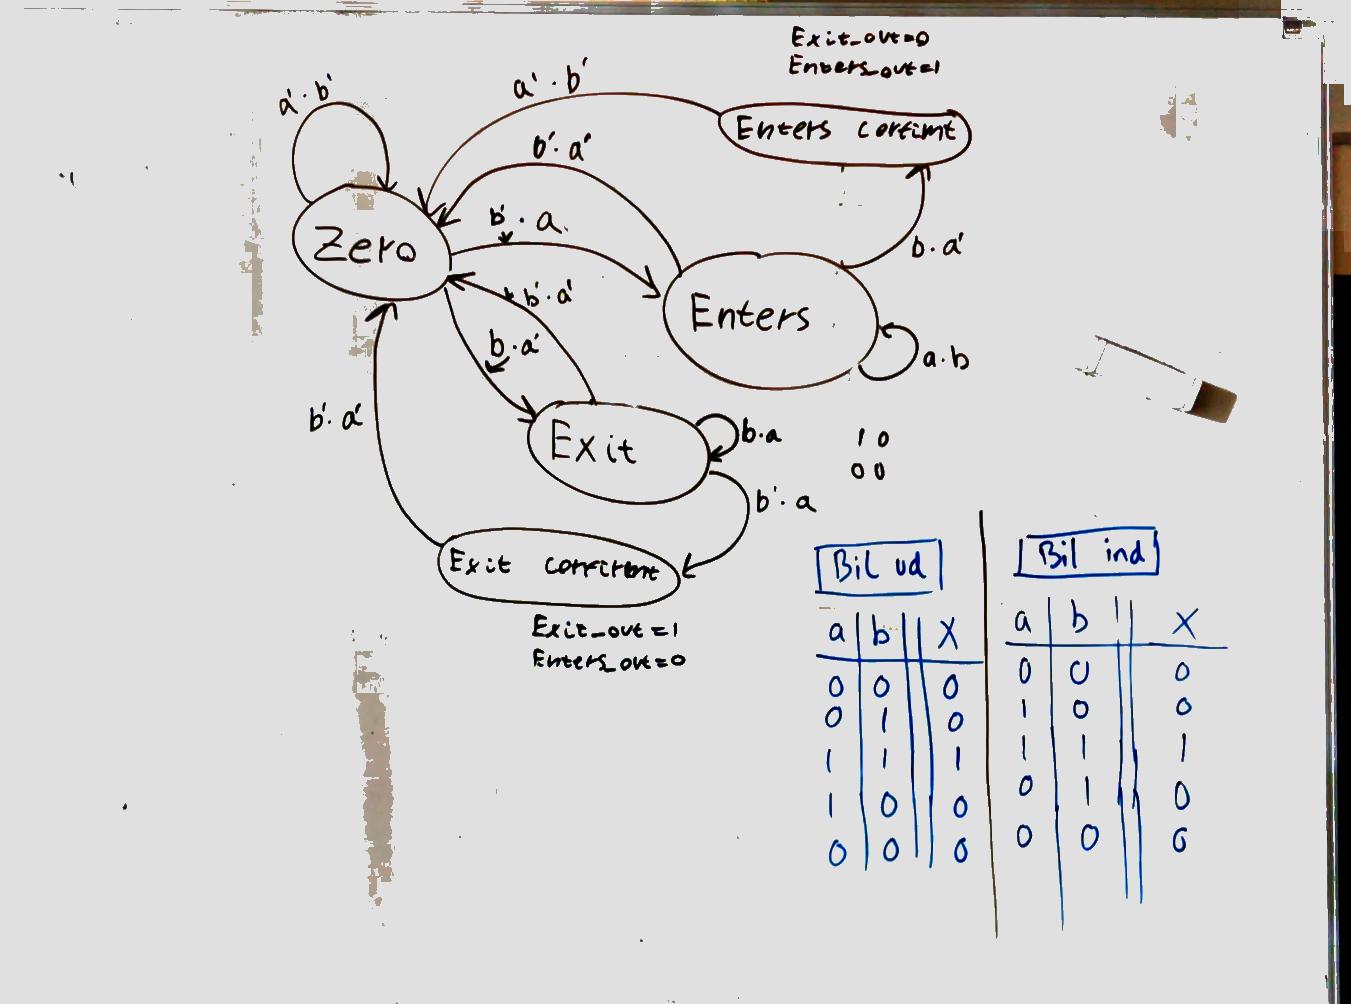 Exit_out=0
Enters_out=1
a'·b'
a'·b'
Enters
b'·a'
b'·a
Zero
b·a'
b'·a'
Enters
b·a'
a·b
b'·a'
Exit
b·a
1 0
0 0
b'·a
Exit
Exit_out=1
Enters_out=0
Bil ud
a b X
0 0 0
0 1 0
1 1 1
1 0 0
0 0 0
Bil ind
a b X
0 0 0
1 0 0
1 1 1
0 1 0
0 0 0